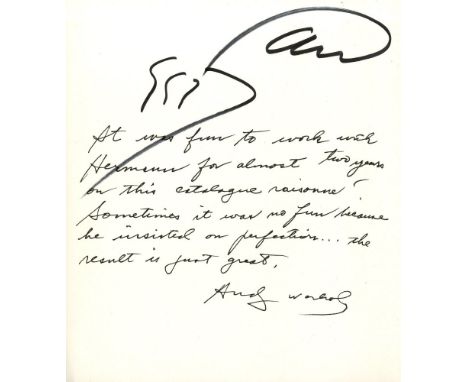 It was fun to work with
Hermann for almost two years
on this catalogue raisonne!
Sometimes it was no fun because
he insisted on perfection... the
result is just great.
Andy Warhol